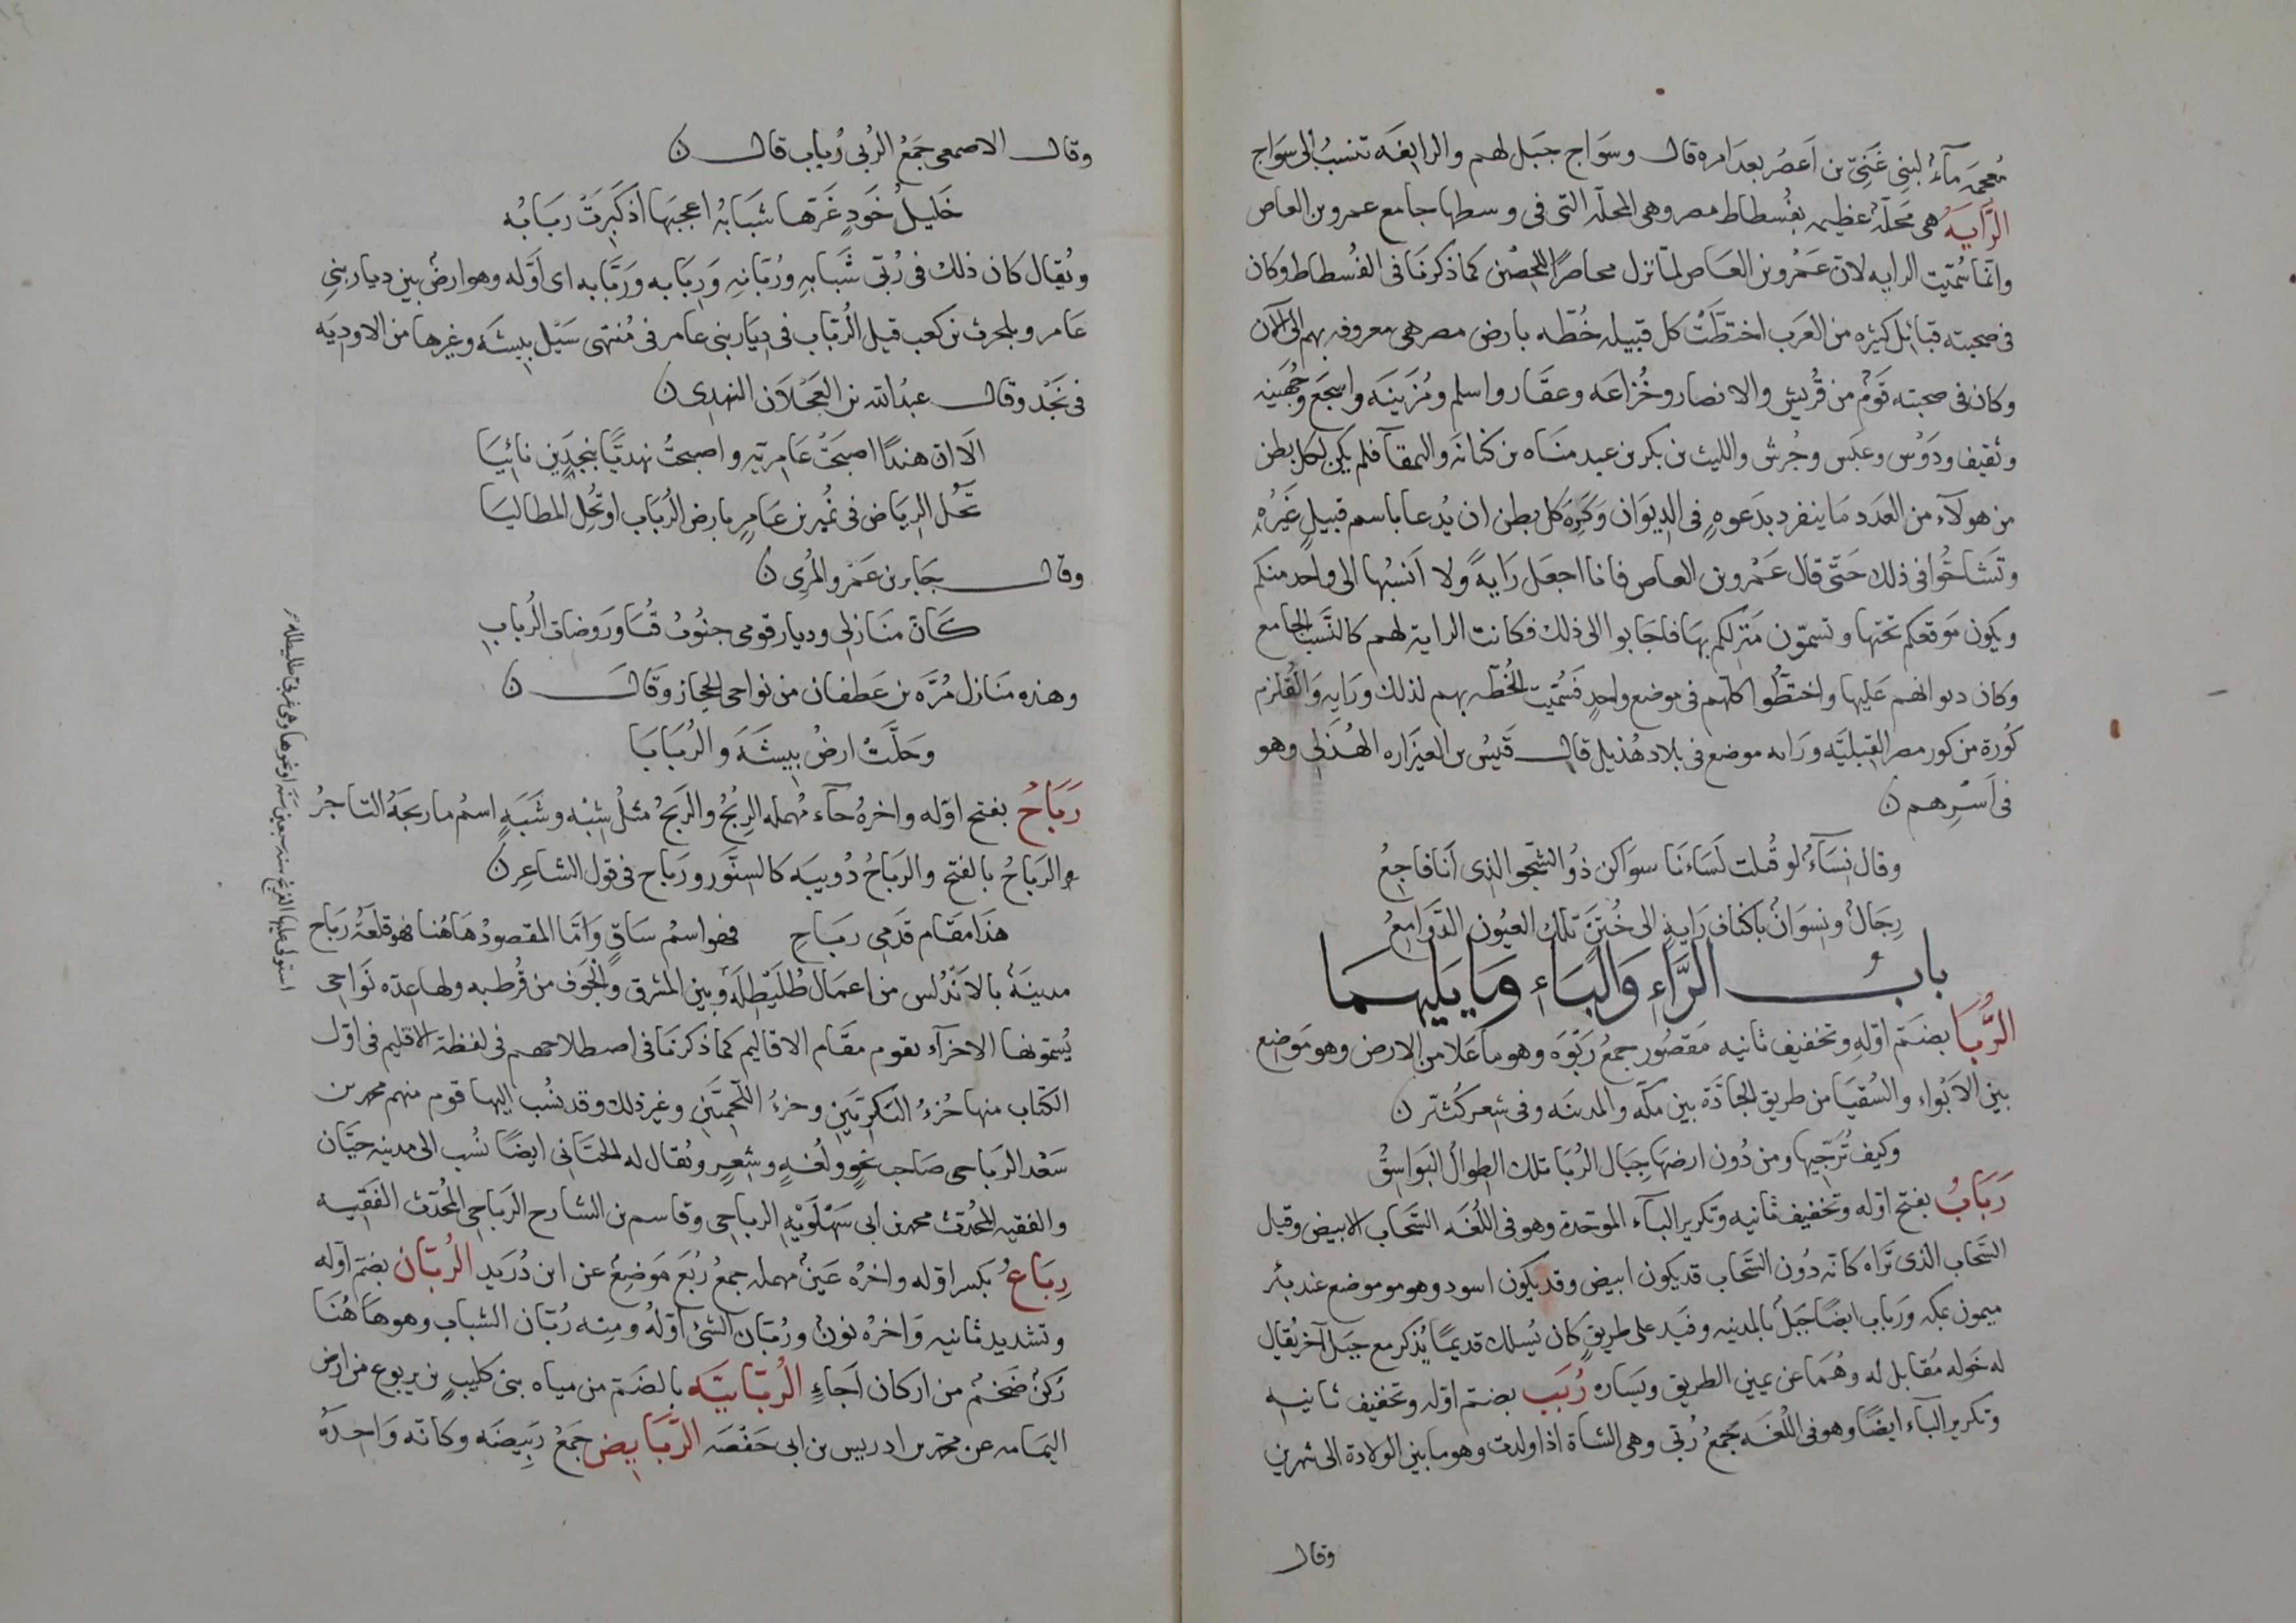 مُعجَمَه مآءٌ لبنِى غَنِىّ بن اَعصُر بعد امره قال وسَوَاج جبَل لهم والرابغَه تنسبُ الى سَوَاج
الرَّايَةُ هى مَحلّةٌ عظيمه بفُسطاط مصر وهى المحلّه التى فى وسطها جامع عمرو بن العاص
وانّما سُمّيَت الرايه لانّ عَمْرو بن العَاص لمّا نزل محاصرًا للحِصْن كما ذكرنَا فى الفُسطاط وكان
فى صحبته قبائل كثيره من العَرَب اختطَّتْ كل قبيله خُطّه بارض مصر هى معروفه بهم الى الآن
وكان فى صحبته قَومٌ من قُريش والانصار وخُزَاعَه وغفار واسلم ومُزَينَه واشجَع وجُهَينه
وثقيف ودَوْس وعبَس وجُرش والليث بن بكر بن عبد منَاه بن كنانَه والعتقآ فلم يكن لكل بطن
من هولآء من العَدَد مَا ينفرد بدَعوهٍ فى الدِيوَان وَكَرِهَ كل بطن ان يُدعا باسم قبيلٍ غَيرُهِ
وتَشَاحّوا فى ذلك حَتّى قال عَمْرو بن العاص فانا اجعَل رَايهً ولا اَنسبُها الى واحد منكم
ويكون مَوقعكم تحتها وتسمّون مَنزلكم بهَا فاجَابوا الى ذلك فكانت الراية لهم كالنَّسب الجامع
وكان ديوانهم عَليها واختطُّوا كلّهم فى موضع واحدٍ فَسُمّيَت الخُطّه بهم لذلك ورَايه وَالقُلزم
كُورة من كور مصر القِبليَّه ورَايه موضع فى بلاد هُذيل قال قَيسُ بن العيزاره الهُذَلى وهو
فى اَسْرِهم ن
وقال نِسَآءٌ لو قُتلت لَسَاءنَا سوَاكن ذوُ الشّجو الذى اَنَا فاجعُ
رِجَالٌ ونِسوَانٌ باكناف رَايةٍ الى خُثنٍ تلك العيُون الدَّوَامعُ
بابُ الرَّاءِ وَالبَاءِ وَمَا يَليهمَا
الرُّبَا بضمّ اوّلهِ وتخفيف ثانيه مَقصُور جمعُ رَبْوَه وهو ما عَلا من الارض وهو مَوضع
بين الاَبْواء والسُقيَا من طريق الجَادّة بين مكّه والمدينَه وفى شعر كُثيّر ن
وكيف تُرَجّيها ومن دُون ارضهَا جِبَال الرُبَا تلك الطِوالُ البَوَاسِقُ
رَبَابُ بفتح اوّله وتخفيف ثانيه وتكرير البآء الموحّدة وهو فى اللغَه السَّحَاب الابيض وقيل
السَّحاب الذى تَرَاه كانّه دُون السَّحَاب قد يكون ابيض وقد يكون اسود وهو موموضع عند بئر
ميمون بمكه ورَباب ايضًا جَبَلٌ بالمدينه وفَيد على طريقٍ كان يُسلك قديمًا يُذكر مع جبَل آخر يُقال
له خَوله مُقابل له وهُمَا عن يمين الطريق ويَساره رُبَب بضم اوّله وتخفيف ثانيه
وتكرير البآء ايضًا وهو فى اللُغَه جَمعُ رُبّى وهى الشاة اذا ولدت وهو ما بين الولادة الى شهرين
وقال
وقال الاصمعى جَمَعُ الرُبى رُبَاب قال ن
خَليلُ خَودٍ غَرَّها شبَابهُ اعجبَها اذ كَبِرَتْ ربَابُه
ويُقال كان ذلك فى رُبّى شَبابهِ ورُبّانِهِ وَرِبَابه وَرَبّابه اى اوَّله وهو ارضٌ بين ديار بنى
عَامر وبلحرث بن كعب قيل الرُبَاب فى دِيَار بنى عامر فى مُنتهى سَيْل بيشَه وغيرها من الاودِيَه
فى نَجْد وقال عبدُ الله بن العَجْلَان النهدى ن
الَا ان هندًا اصبحَتْ عَامريّه واصبحتُ نهديًّا بنجدَين نائِيَا
تحُل الرِيَاض فى نُمير بن عَامرٍ بارض الرُبَاب او تحُل المطاليَا
وقال جَابر بن عَمْرو المُرى ن
كَانّ منَازلى وديار قومى جنُوبُ قُسَا ورَوضات الرُباب
وهذه مَنَازل مُرَّه بن غَطفان من نواحى الحجاز وقَالَ ن
وحَلَّتْ ارضُ بيشَهَ والرُبَابَا
رَبَاحُ بفتح اوّله واخرهُ حآء مُهمله الرِبْحُ والرَبَحُ مثلُ شِبْه وشَبَهٍ اسمُ ما رَبحَهُ التاجرُ
والرَباحُ بالفتح والرَبَاحُ دُويبَه كَالسِنَّور ورَباح فى قول الشاعِر ن
هَذا مَقَام قَدَمى ربَاحِ فهو اسمُ سَاقٍ وَامّا المقصودُ هَاهُنا فهو قلعَةُ رَبَاح
مدينَهٌ بالاَنْدلس من اعمَال طُلَيْطِلَه وبين المشرق والجَوف من قُرطبه ولها عدّه نَواحى
يُسمّونها الاجزآء يقوم مقَام الاقاليم كما ذكرنَا فى اصطلاحهم فى لفظة الاقليم فى اوّل
الكتاب منها جُزءُ البَكرِيّين وجزءُ اللّخمِيّين وغير ذلك وقد نُسب اليها قوم منهم محمد بن
سَعْد الرَباحى صَاحب نحوٍ ولُغَةٍ وشِعرٍ ويُقال له الجيَّانى ايضًا نُسب الى مدينه جيَّان
والفقيه المحُدّث محمد بن ابى سَهْلَوَيْهِ الرباحى وقاسم بن الشارح الرَباحى المُحَدّث الفقيه
رِبَاعُ بكسر اوّله واخرُه عَينٌ مهمله جمعُ رُبَع مَوضِعٌ عن ابن دُرَيد الرُبَّان بضمّ اوّله
وتشديد ثانيه وَاخرُه نونٌ ورُبّان الشَئ اوّلُهُ ومنه رُبّان الشباب وهو هَاهُنَا
رُكنٌ ضَخمٌ من اركان اَجَاءٍ الرُبّابيَّه بالضَم من مياه بنى كليبٍ بن يربوع من ارض
اليمَامه عن محمّد بن ادريس بن ابى حَفْصَه الرَّبَايِض جَمعُ رَبِيضَه وكانّه وَاحدَةُ
استولى عليها الفرنج منذ سبعين سنَه او نحوها وهى غربى طليطله